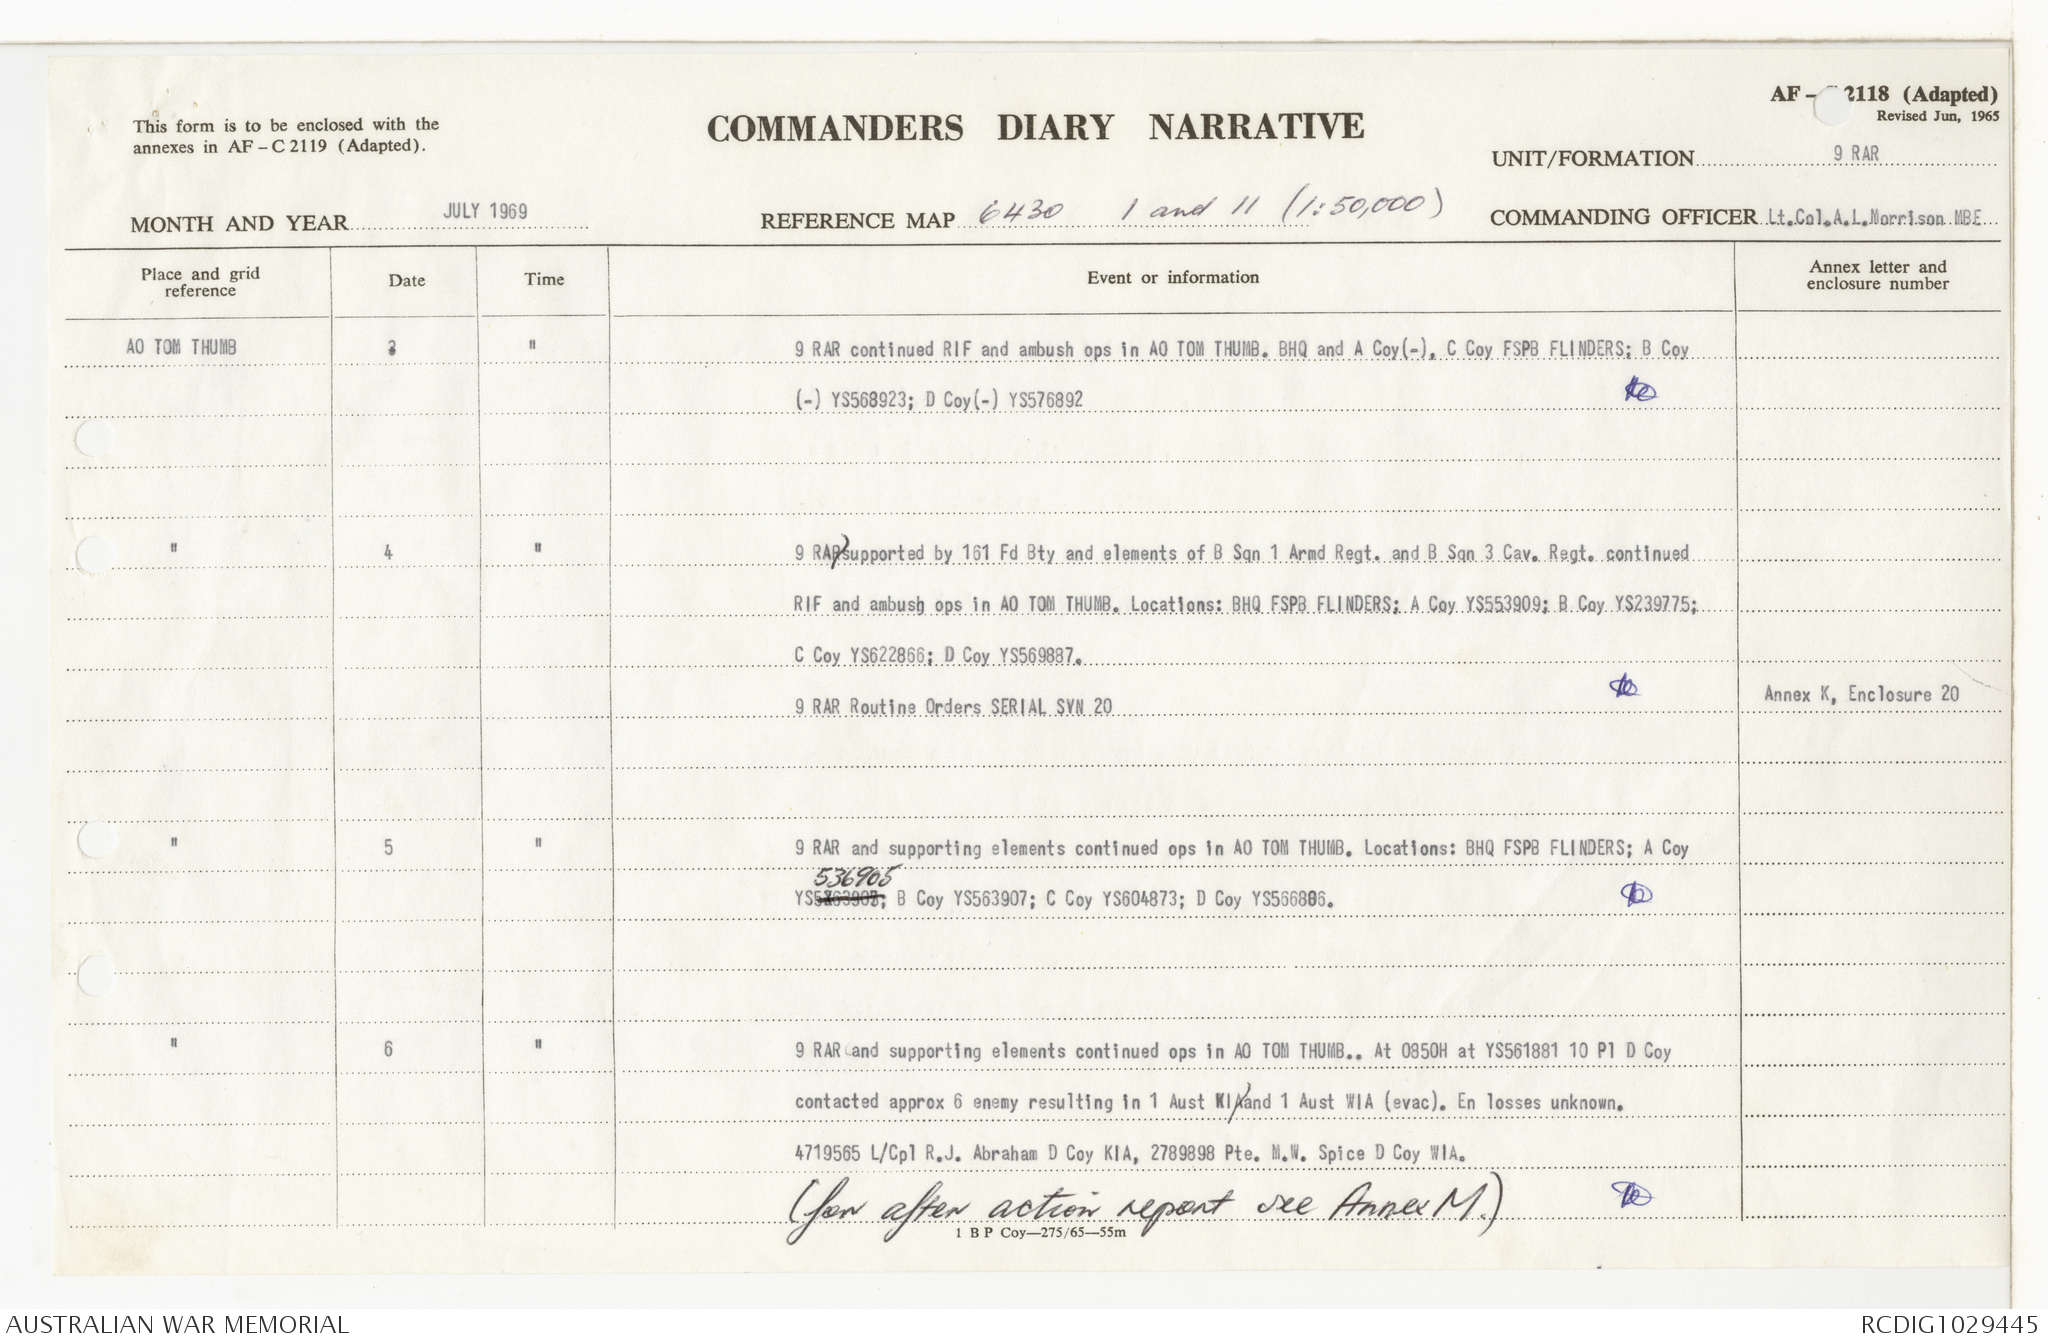 AF - C 2118 (Adapted)
Revised Jun, 1965
This form is to be enclosed with the
annexes in AF - C 2119 (Adapted).
COMMANDERS DIARY NARRATIVE
UNIT/FORMATION 9 RAR
MONTH AND YEAR JULY 1969
REFERENCE MAP 6430 1 and 11 (1:50,000)
COMMANDING OFFICER Lt.Col.A.L.Morrison MBE
Place and grid
reference
Date
Time
Event or information
Annex letter and
enclosure number
AO TOM THUMB 3 " 9 RAR continued RIF and ambush ops in AO TOM THUMB. BHQ and A Coy(-), C Coy FSPB FLINDERS; B Coy
(-) YS568923; D Coy(-) YS576892
" 4 " 9 RAR supported by 161 Fd Bty and elements of B Sqn 1 Armd Regt. and B Sqn 3 Cav. Regt. continued
RIF and ambush ops in AO TOM THUMB. Locations: BHQ FSPB FLINDERS; A Coy YS553909; B Coy YS239775;
C Coy YS622866; D Coy YS569887.
9 RAR Routine Orders SERIAL SVN 20 Annex K, Enclosure 20
" 5 " 9 RAR and supporting elements continued ops in AO TOM THUMB. Locations: BHQ FSPB FLINDERS; A Coy
536905
YS B Coy YS563907; C Coy YS604873; D Coy YS566886.
" 6 " 9 RAR and supporting elements continued ops in AO TOM THUMB.. At 0850H at YS561881 10 Pl D Coy
contacted approx 6 enemy resulting in 1 Aust KIA and 1 Aust WIA (evac). En losses unknown.
4719565 L/Cpl R.J. Abraham D Coy KIA, 2789898 Pte. M.W. Spice D Coy WIA.
(for after action report see Annex M.)
1 B P Coy—275/65—55m
AUSTRALIAN WAR MEMORIAL RCDIG1029445